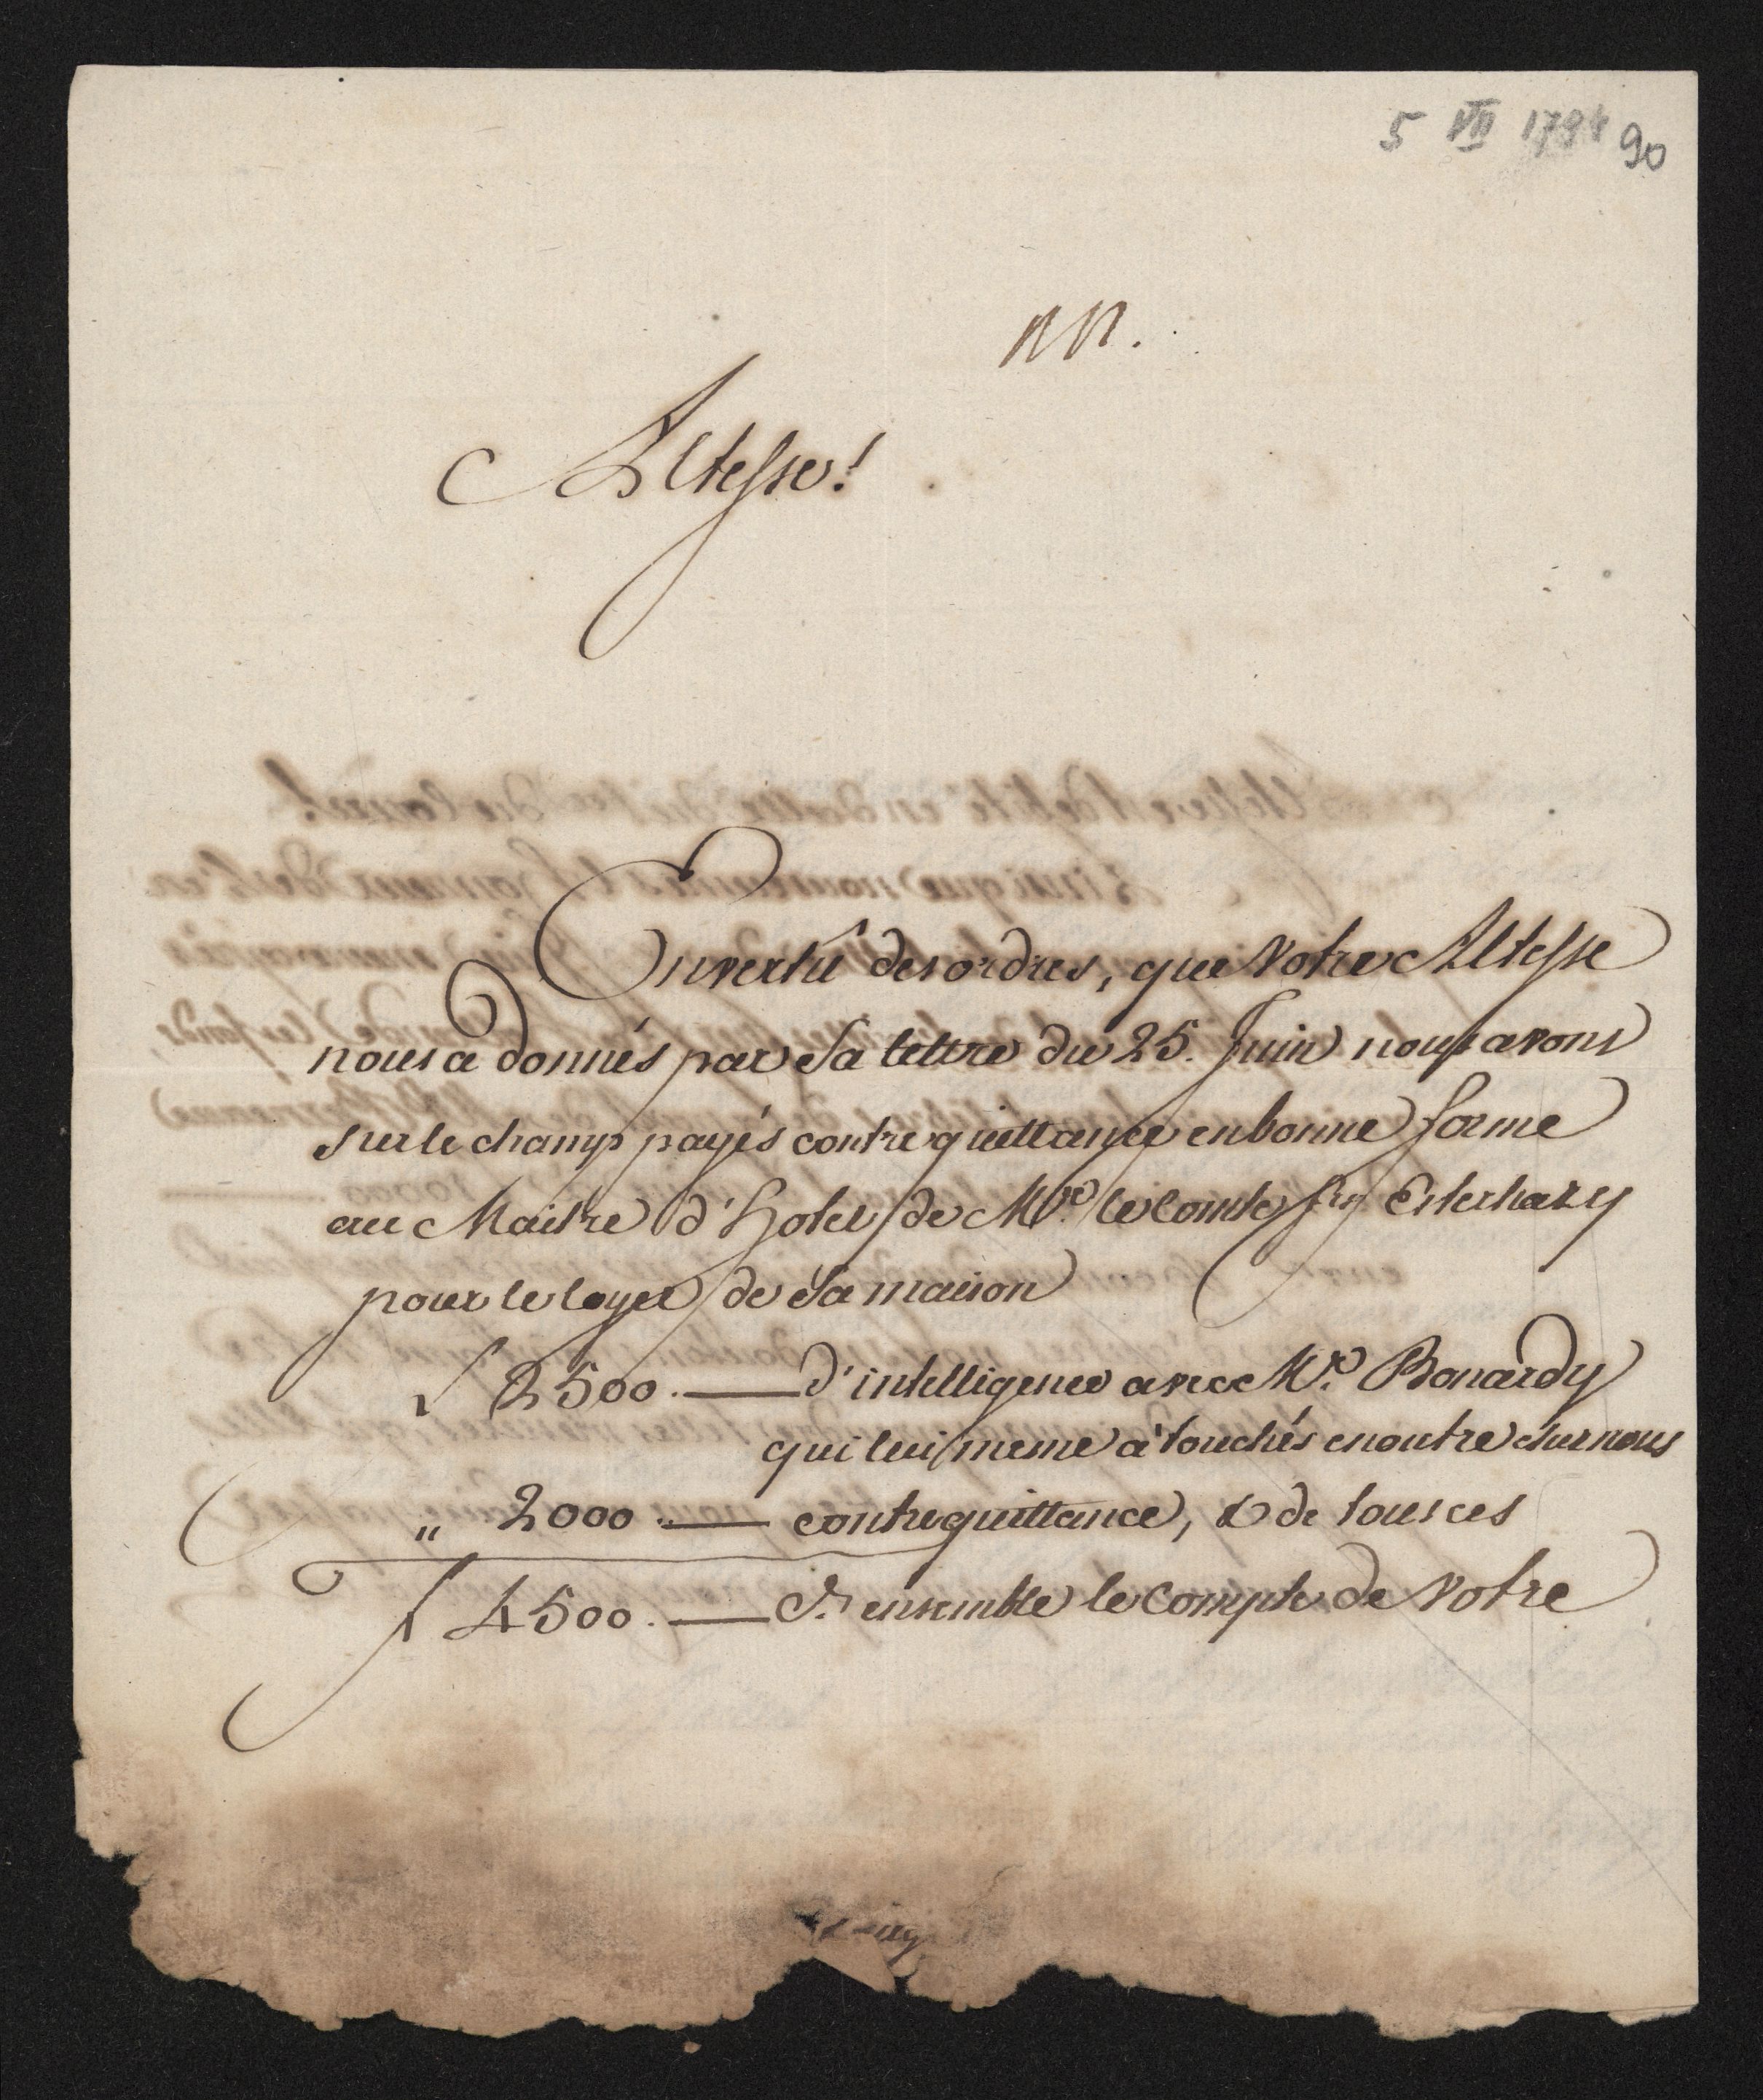 5 VII 1794 90
NN.
Altesse!
En vertû des ordres, que Votre Altesse
nous a donnés par Sa lettre du 25. Juin nous avons
sur le champ payés contre quittance en bonne forme
au Maitre d'Hotel de Mr. le Comte Esterhazy
pour le loyer de Sa maison
f 2500. — d'intelligence avec Mr. Bonardy
qui lui meme à touchés en outre chez nous
" 2000 — contre quittance, & de tous ces
f 4500. — ensemble le Compte de Votre